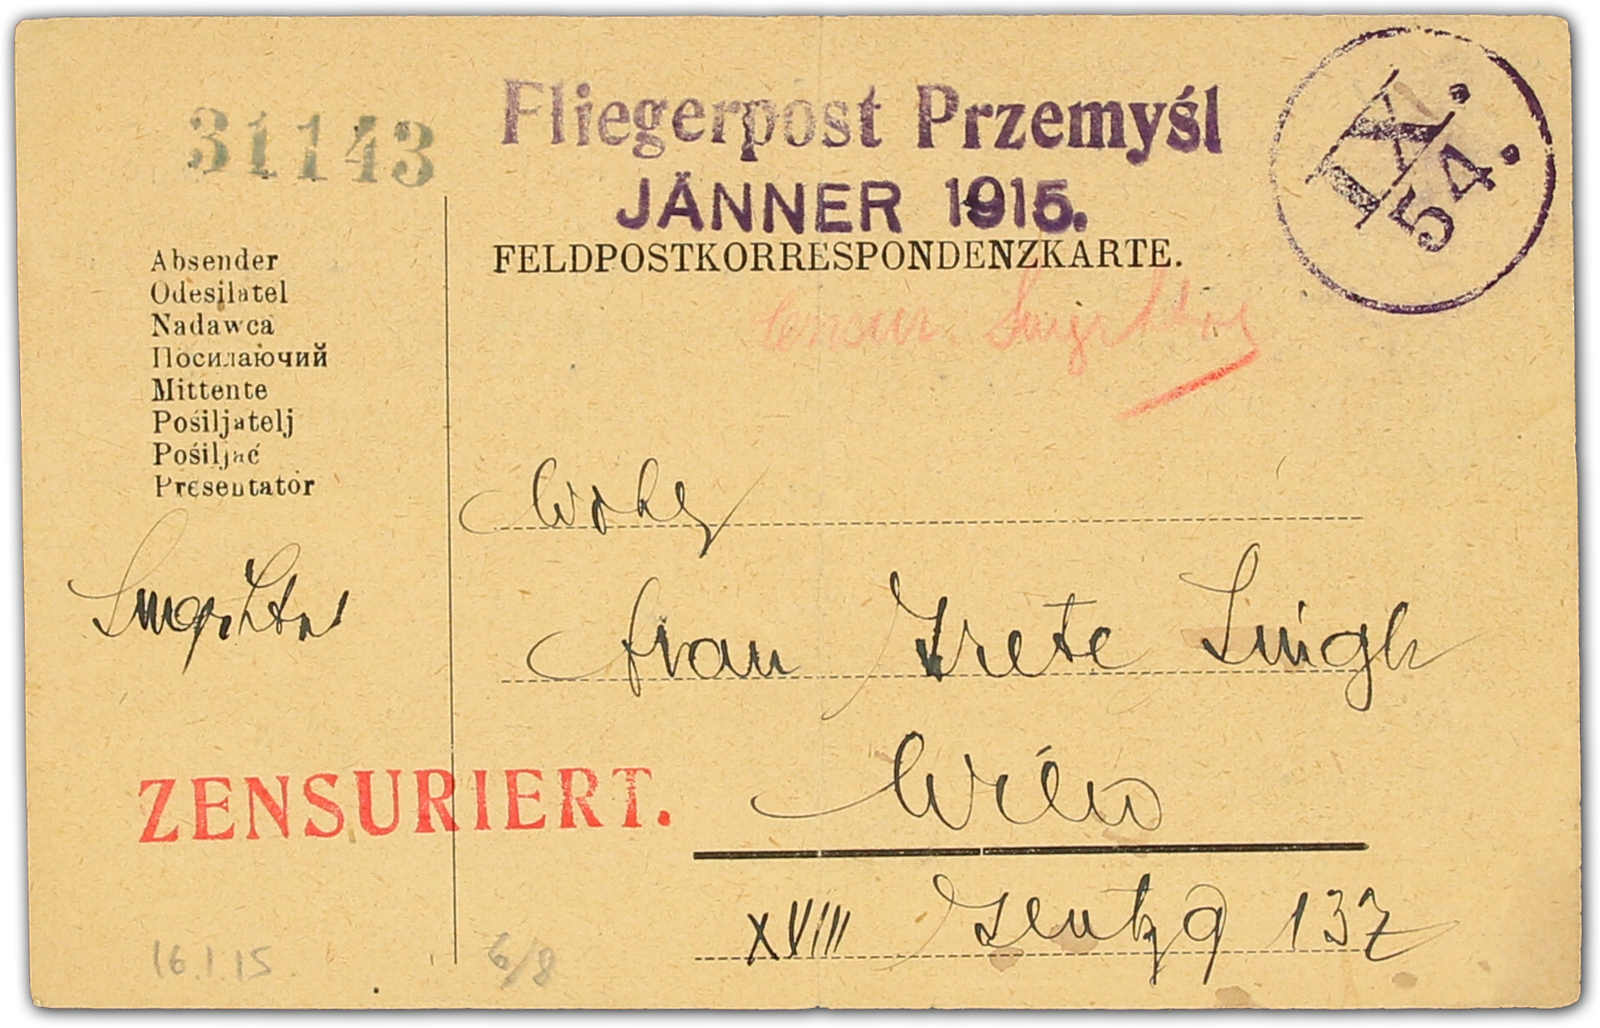 31143
Fliegerpost Przemyśl
JÄNNER 1915.
IX.
54.
FELDPOSTKORRESPONDENZKARTE.
Absender
Odesilatel
Nadawca
Посилаючий
Mittente
Pośiljatelj
Pośiljać
Presentator
Frau Grete
Wien
XVIII 137
ZENSURIERT.
16.1.15.
6/8